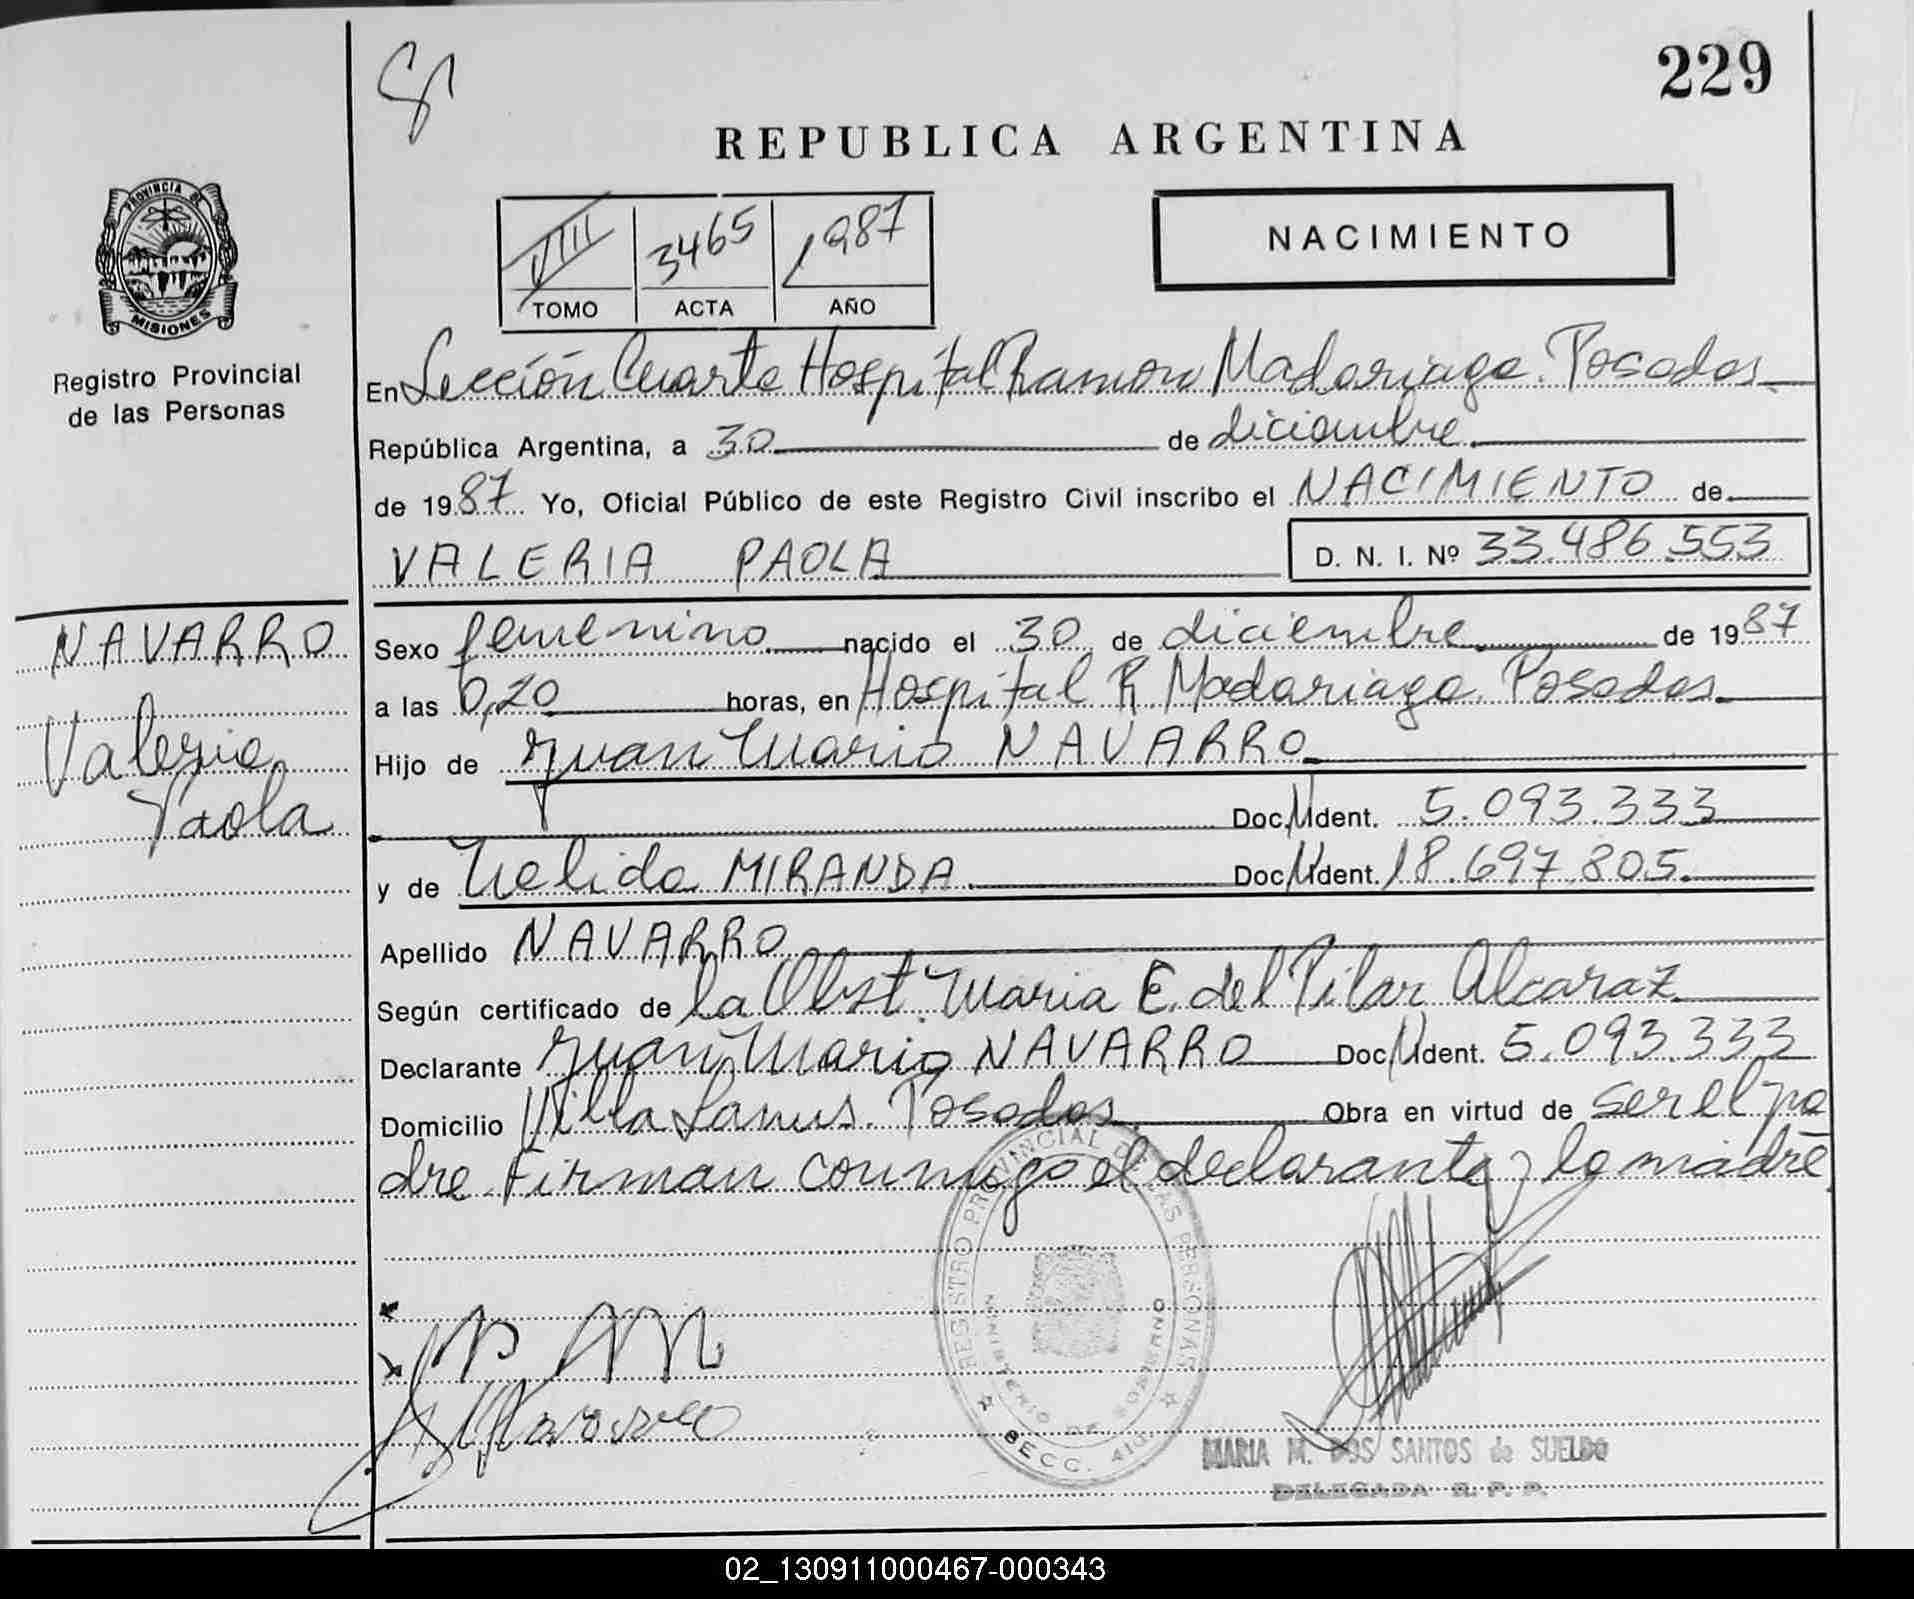 229
REPUBLICA ARGENTINA
PROVINCIA DE
MISIONES
Registro Provincial
de las Personas
VIII 3465 1987
TOMO ACTA AÑO
NACIMIENTO
En Sección Cuarta Hospital Ramon Madariaga. Posadas
República Argentina, a 30 de diciembre
de 1987 Yo, Oficial Público de este Registro Civil inscribo el NACIMIENTO de
VALERIA PAOLA D. N. I. Nº 33.486.553
NAVARRO
Valeria
Paola
Sexo femenino nacido el 30 de diciembre de 1987
a las 0,20 horas, en Hospital R. Madariaga. Posadas
Hijo de Juan Mario NAVARRO
Doc. Ident. 5.093.333
y de Nelida MIRANDA Doc. Ident. 18.697.805
Apellido NAVARRO
Según certificado de la Obst. Maria E. del Pilar Alcaraz
Declarante Juan Mario NAVARRO Doc. Ident. 5.093.333
Domicilio Villa Lanus. Posadas Obra en virtud de ser el pa
dre. Firman conmigo el declarante y la madre
REGISTRO PROVINCIAL DE LAS PERSONAS
MINISTERIO DE GOBIERNO
SECC. 4ta
MARIA M. DOS SANTOS de SUELDO
DELEGADA R. P. P.
02_130911000467-000343